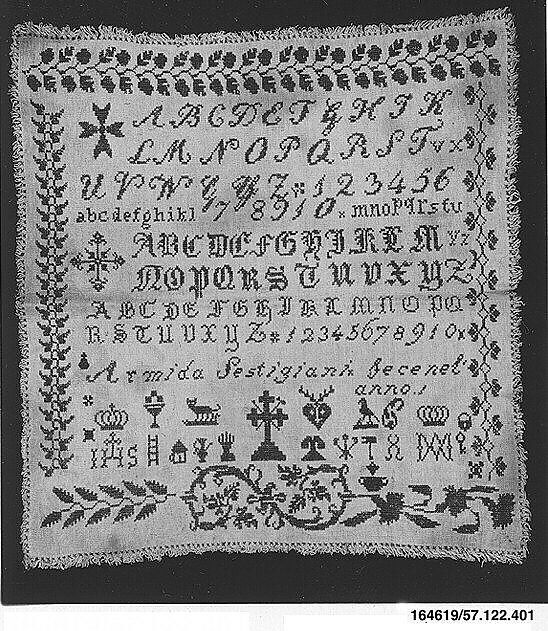 A B C D E F G H I K
L M N O P Q R S T v x
U V W X Y Z 1 2 3 4 5 6
abcdefghikl 7 8 9 1 0 x mnopqrstu
A B C D E F G H I K L M y z
N O P Q R S T U V X Y Z
A B C D E F G H I K L M N O P Q
R S T U V X Y Z * 1 2 3 4 5 6 7 8 9 1 0 x
Armida Sestigiani fecenel
anno 1
IHS
164619/57.122.401